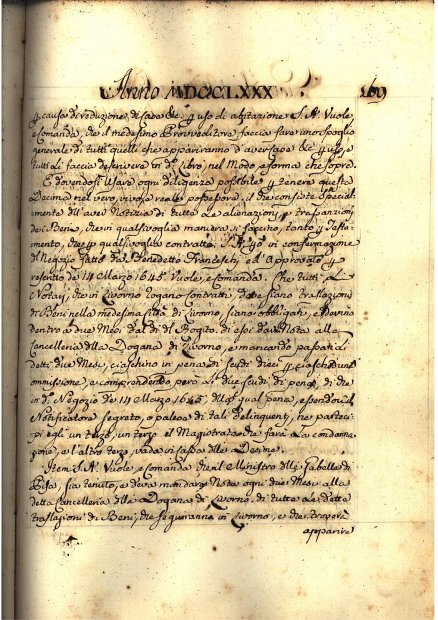 Anno MDCCLXXX 169
p causa di reduzione di case &c p uso di abitazione S. A. Vuole,
e Comanda, che il medesimo Provveditore faccia fare uno spoglio
generale di tutti quelli che appariranno d'aver case &c p uso, e
tutti li faccia descrivere in d.º Libro, nel Modo, e forma che sopra.
E dovendosi Usare ogni diligenza possibile p tenere questa
Decima nel vero, vivo, e reale possessore, il che consiste special-
mente d'aver Notizia di tutte le alienazioni, e traspanzioni
de i Beni, che in qualsivoglia maniera si faccino, tanto p Testa-
mento, che p qualsivoglia contratto. S. A. in confermazione
del Negozio fatto da Benedetto Franceschi, e d'Approvato p
rescritto de 14 Marzo 1645. Vuole, e Comanda: Che tutti Li
Notai, che in Livorno rogano contratti, dove siano traslazioni
di Beni nella medesima Città di Livorno, siano obbligati, e devino
dentro a due Mesi dal dì del Rogito di essi dar Nota alla
Cancelleria della Dogana di Livorno, e mancando passati
detti due Mesi, ciaschino in pena di scudi dieci p ciascheduna
ommissione, e comprendendo però li due scudi di pena, di che
in d.º Negozio de 14 Marzo 1645, della qual pena, essendovi il
Notificatore segreto, o palese di tali delinquenti, ne parteci-
pi egli un terzo, un terzo il Magistrato che farà la condanna-
zione, e l'altro terzo vada in Cassa delle Decime.
Item S. A. Vuole, e Comanda che il Ministro della Gabella di
Pisa, sia tenuto, e deva mandare Nota ogni due Mesi alla
detta Cancelleria della Dogana di Livorno di tutte le dette
traslazioni di Beni, che seguiranno in Livorno, e che troverà
apparire